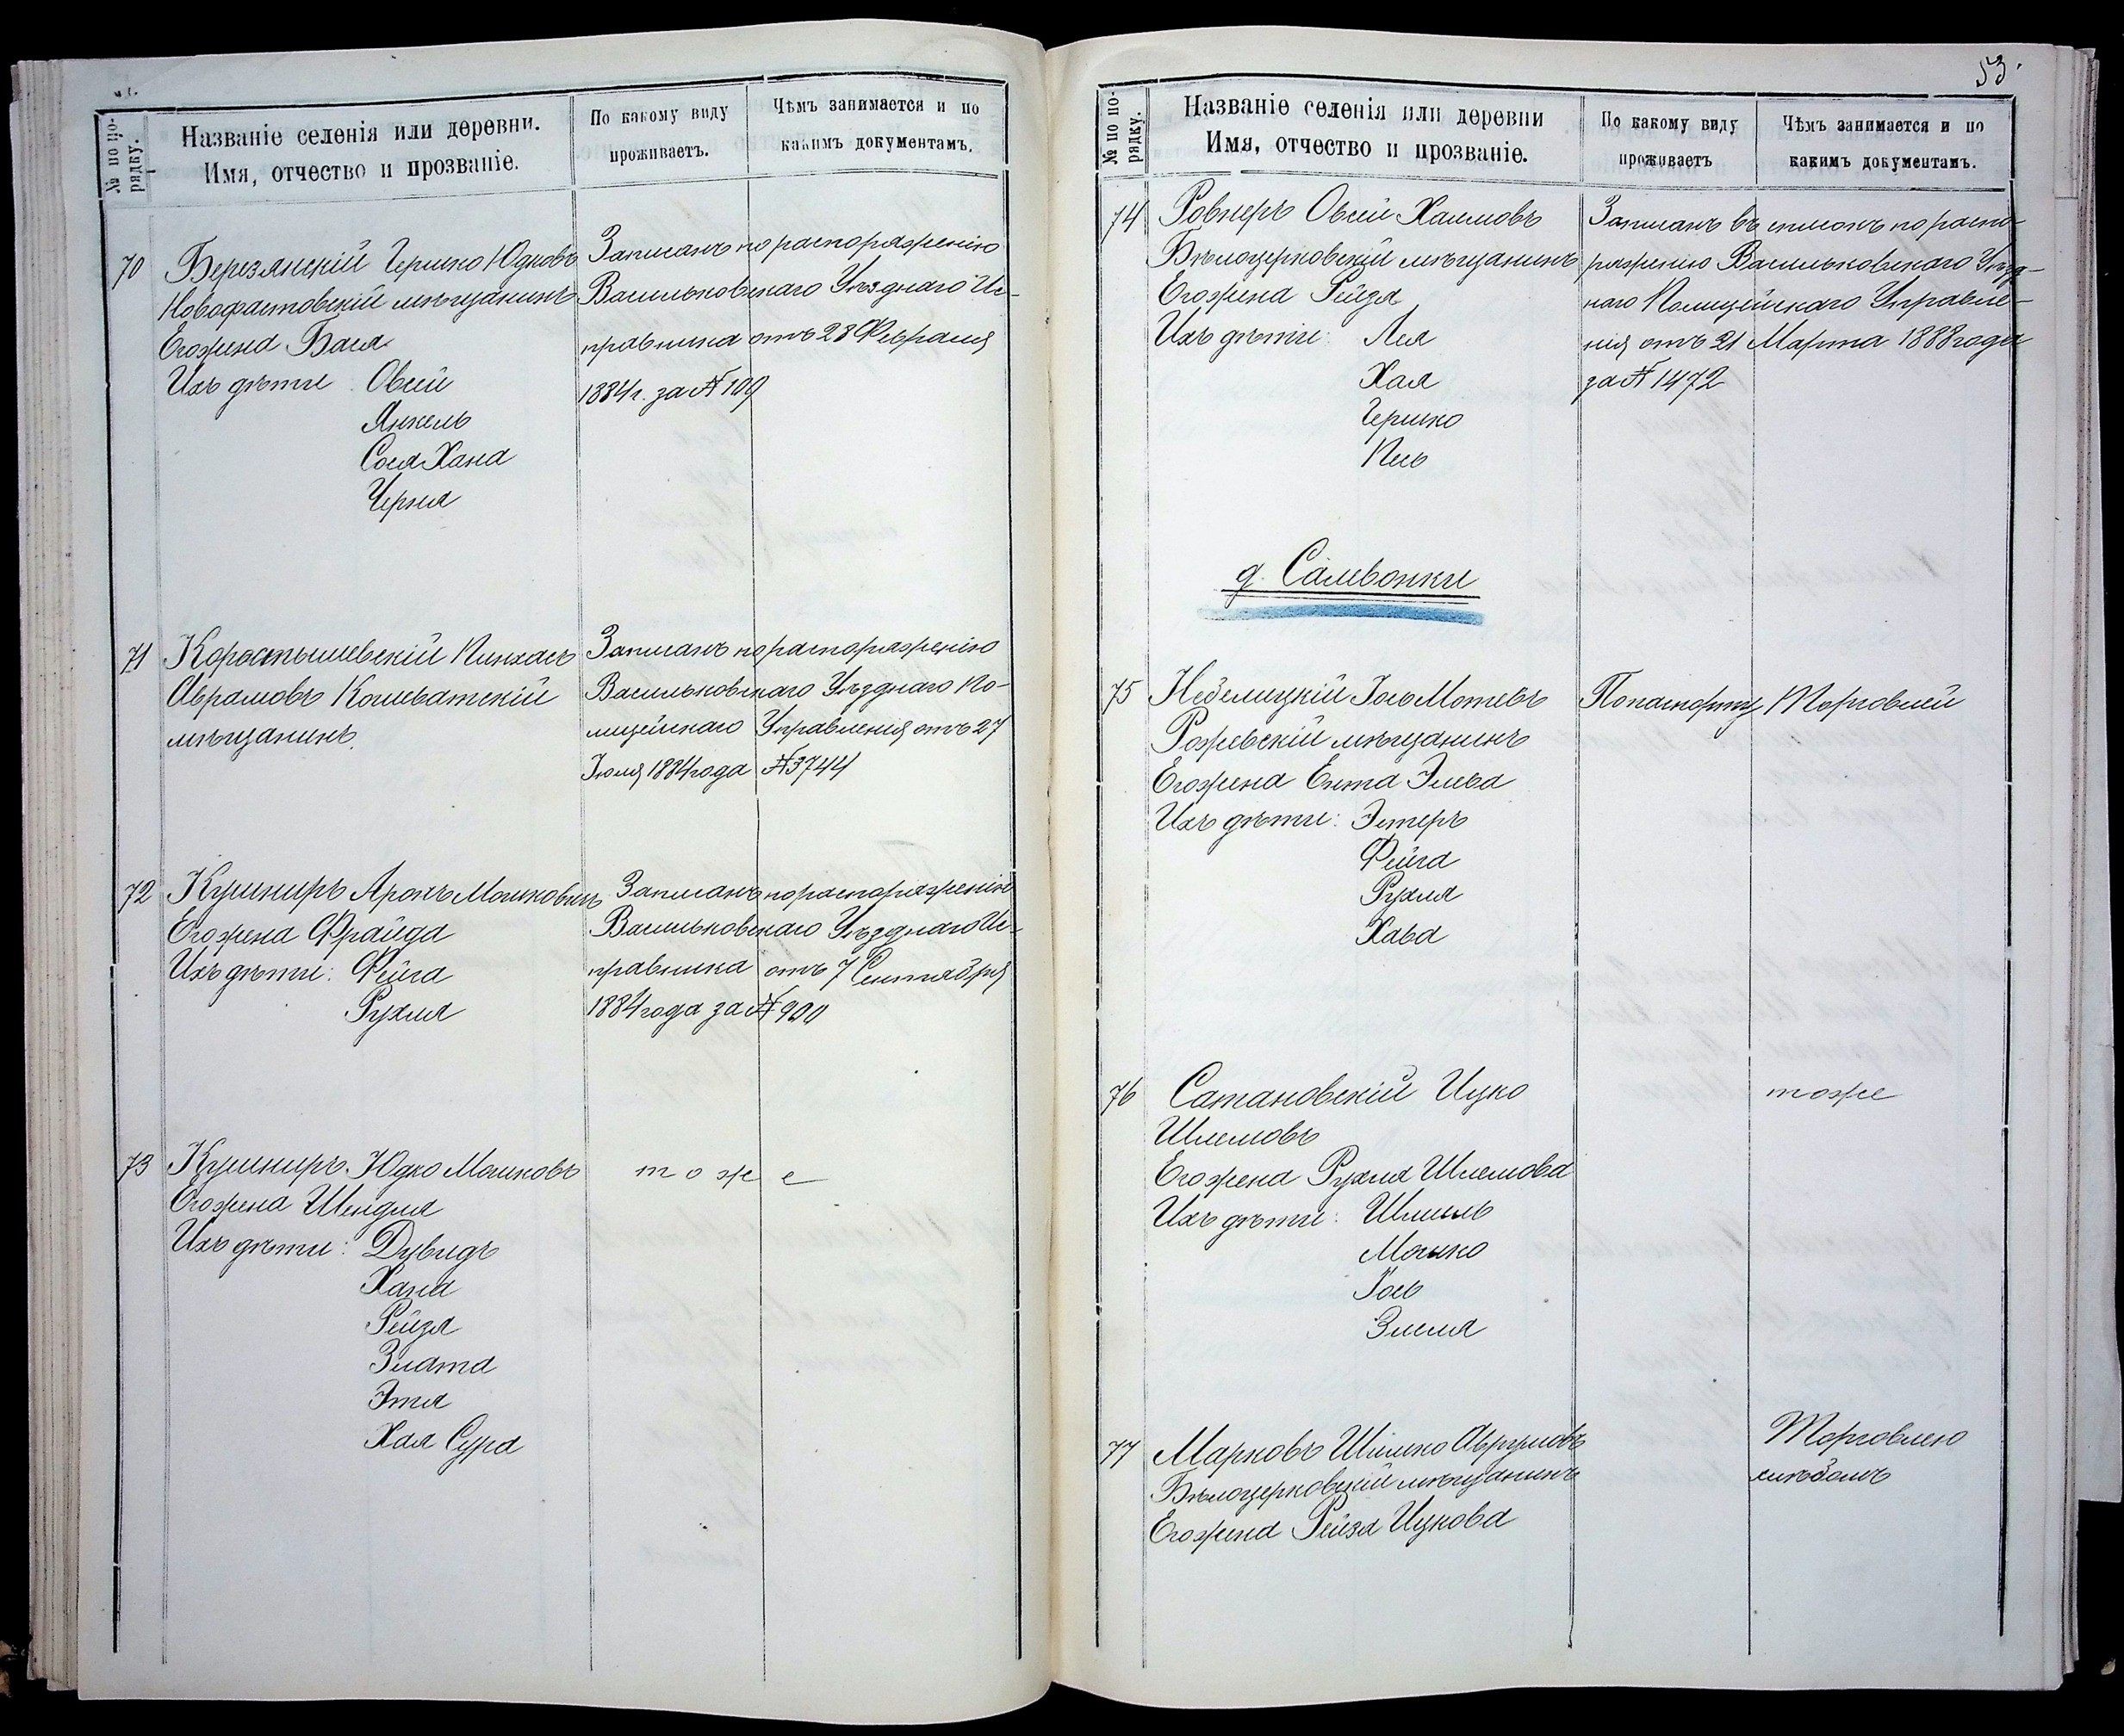 № по порядку.
Названіе селенія или деревни.
Имя, отчество и прозваніе.
По какому виду
проживаетъ.
Чѣмъ занимается и по
какимъ документамъ.
70 Березянскій Гершко Юдковъ
Новофастовскій мѣщанинъ
Его жена Бася
Ихъ дѣти Овсій
Янкель
Сося Хана
Черня
Записанъ по распоряженію
Васильковскаго Уѣзднаго Ис-
правника отъ 28 Февраля
1884 г. за № 109
71 Коростышевскій Пинхасъ
Аврамовъ Кошеватскій
мѣщанинъ.
Записанъ по распоряженію
Васильковскаго Уѣзднаго По-
лицейскаго Управленія отъ 27
Іюля 1884 года № 3744
72 Кушниръ Аронъ Мошковичъ
Его жена Фрайда
Ихъ дѣти: Фейга
Рухля
Записанъ по распоряженію
Васильковскаго Уѣзднаго Ис-
правника отъ 7 Сентября
1884 года за № 900
73 Кушниръ Юдко Мошковъ
Его жена Шендля
Ихъ дѣти: Дувидъ
Хана
Рейзя
Злата
Этя
Хая Сура
тоже
53.
№ по порядку.
Названіе селенія или деревни
Имя, отчество и прозваніе.
По какому виду
проживаетъ
Чѣмъ занимается и по
какимъ документамъ.
74 Ровнеръ Овсій Хаимовъ
Бѣлоцерковскій мѣщанинъ
Его жена Рейзя
Ихъ дѣти: Лея
Хая
Гершко
Песь
Записанъ въ список по распо-
ряженію Васильковскаго Уѣзд-
наго Полицейскаго Управле-
нія отъ 21 Марта 1888 года
за № 1472
д. Саливонки
75 Неделицкій Іось Мотевъ
Рожевскій мѣщанинъ
Его жена Ента Элева
Ихъ дѣти: Эстеръ
Фейга
Рухля
Хава
По паспорту
Торговлей
76 Сатановскій Ицко
Шлемовъ
Его жена Рухля Шлемова
Ихъ дѣти: Шмиль
Мошко
Іось
Зисля
тоже
77 Марковъ Шлемко Аврумовъ
Бѣлоцерковскій мѣщанинъ
Его жена Рейза Ицкова
Торговлею
хлѣбомъ